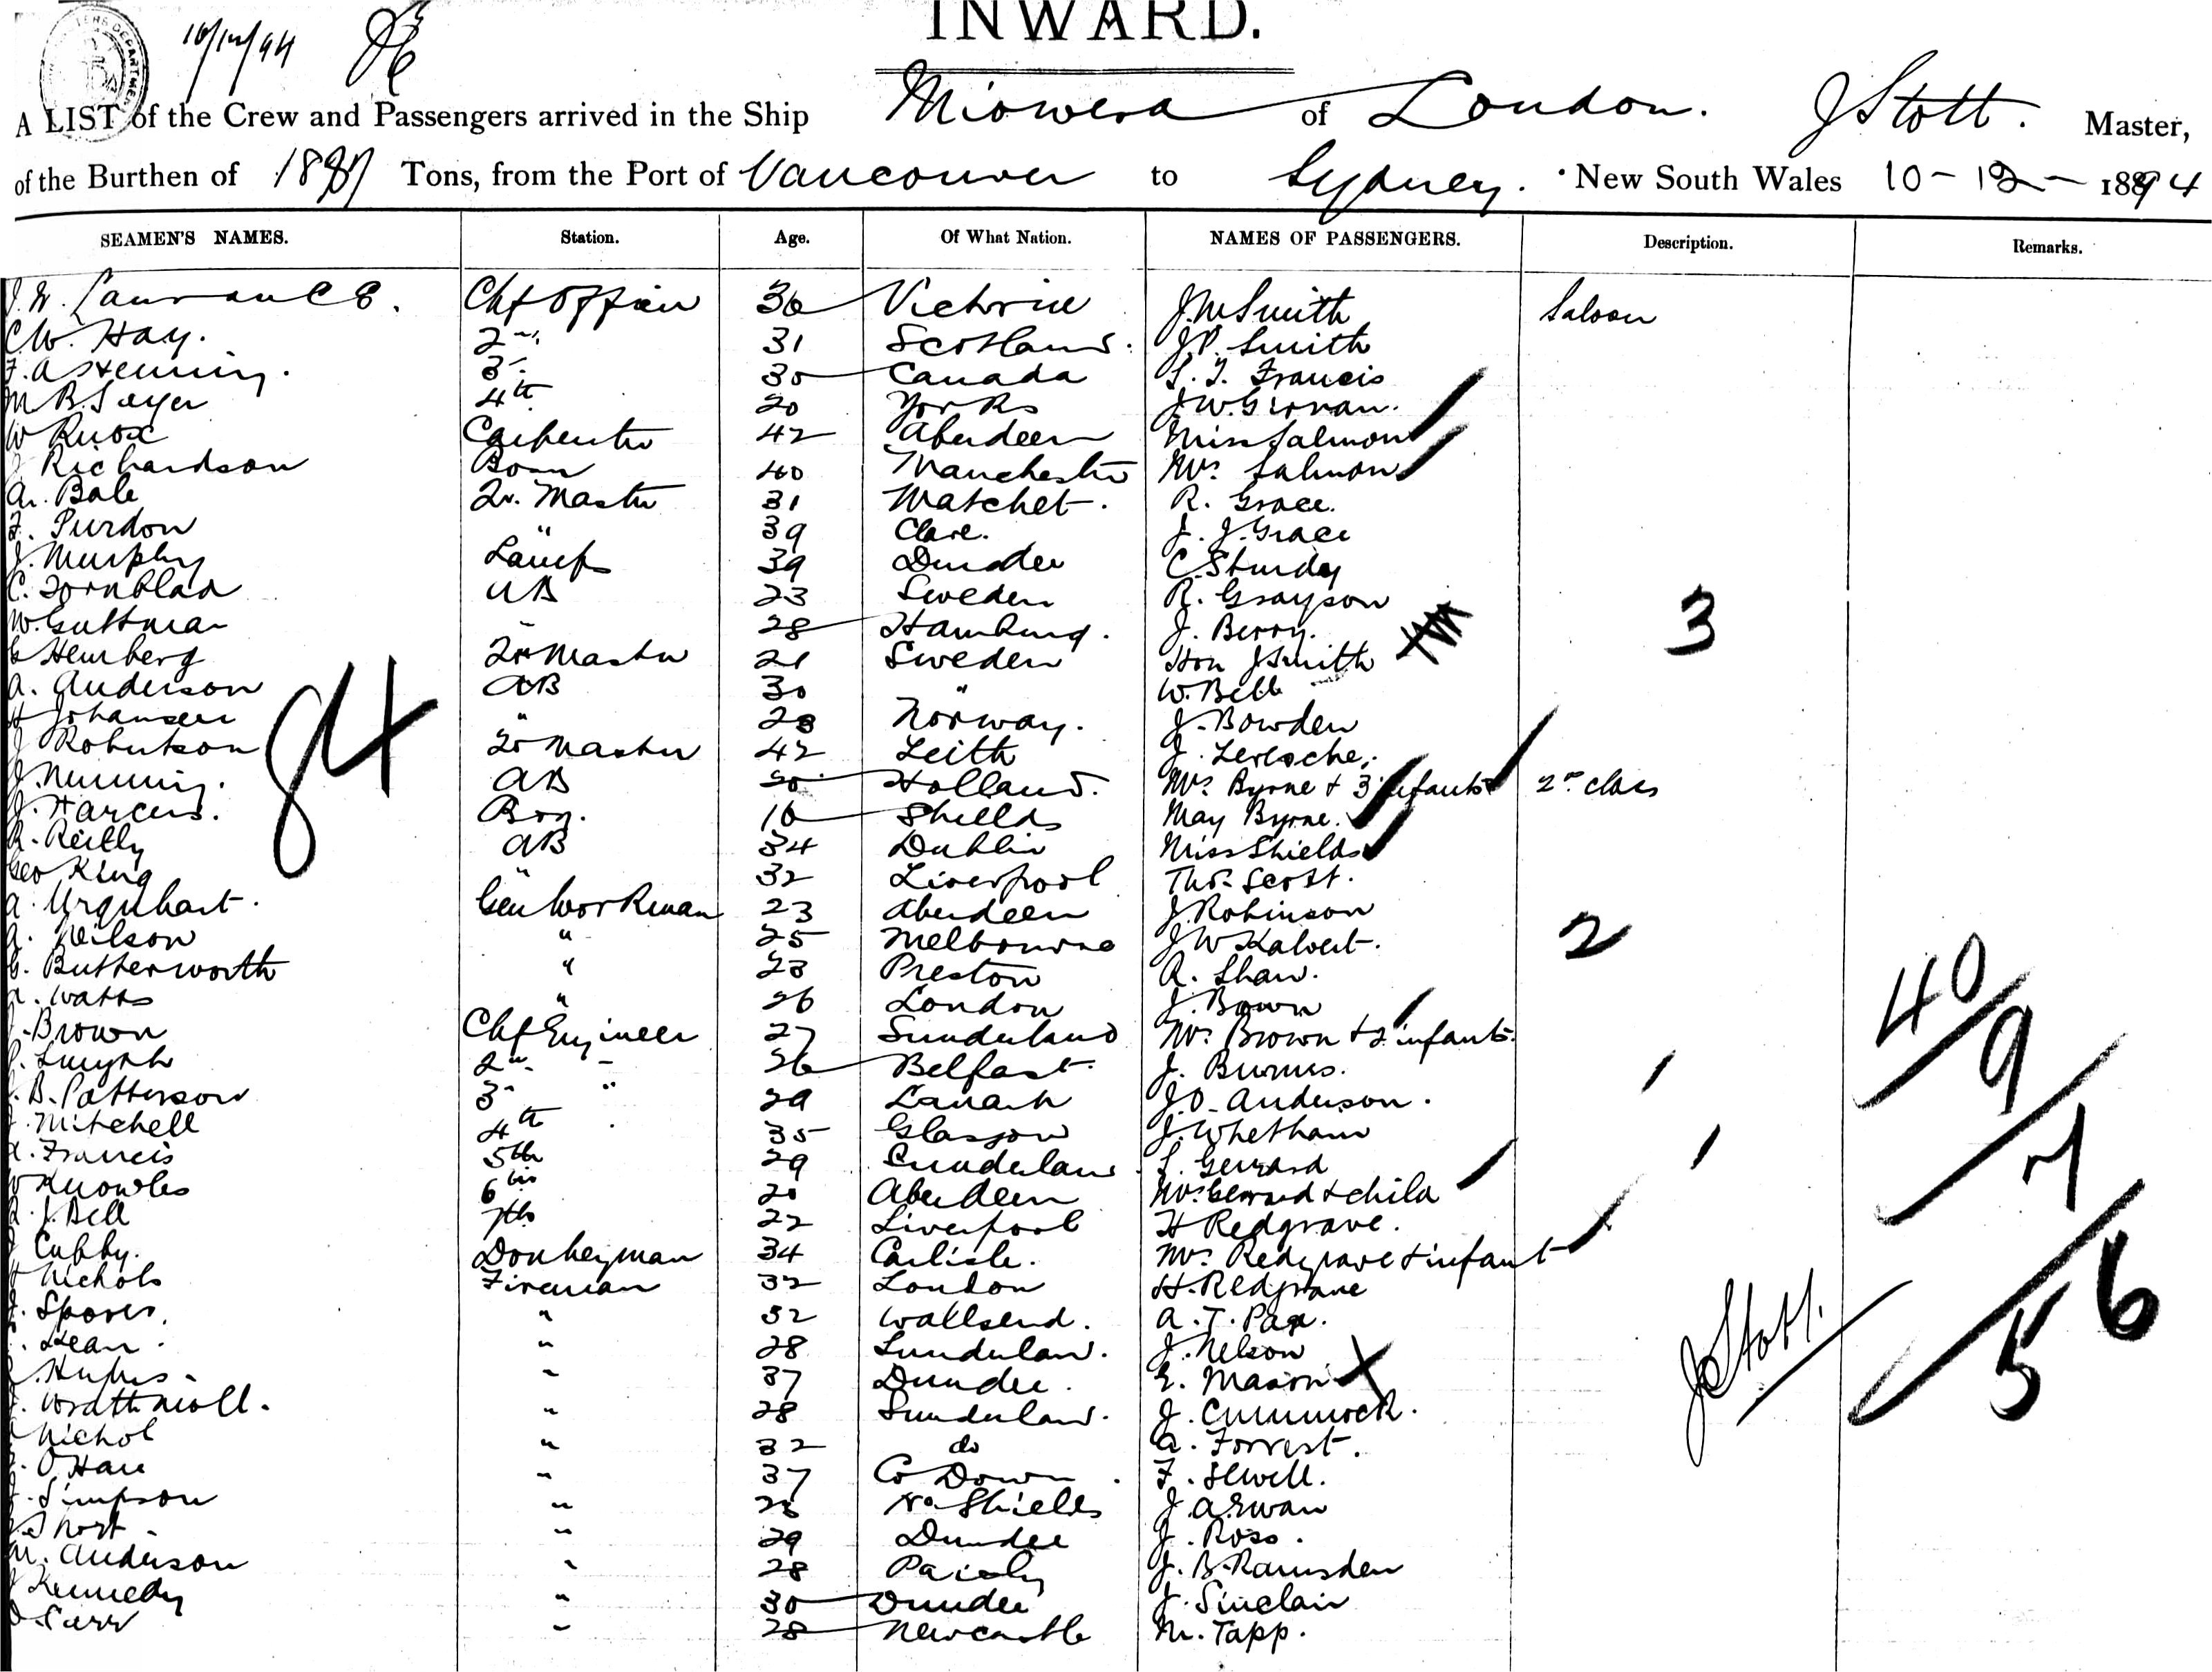 10/12/94
INWARD.
A LIST of the Crew and Passengers arrived in the Ship Miowera of London. J Stott. Master,
of the Burthen of Tons, from the Port of Vancouver to Sydney. New South Wales 10-12-1894
SEAMEN'S NAMES. Station. Age. Of What Nation. NAMES OF PASSENGERS. Description. Remarks.
J.W. Lawrance. Chf Officer 36 Victoria J.W Smith Saloon
C.W. Hay. 2nd 31 Scotland. J.P. Smith
F. 3 30 Canada L. T. Francis
M B. Sayer 4th 20 Yorks J.W. Girvan.
W Knox Carpenter 42 Aberdeen Miss Salmon
Richardson Bosn 40 Manchester Mrs Salmon
A. Bale Qr. Master 31 Watchet. R. Grace.
F. Purdon " 39 Clare. J. J. Grace
J. Murphy Lamps 39 Dundee C. Sturdy
C. Tornblad AB 23 Sweden R. Grayson
W. Guttman 28 Hamburg. J. Berry. 3
Hemberg Qr Master 21 Sweden Hon J Smith
A. Anderson AB 30 " W. Bell
H Johansen " 28 Norway. J. Bowden
J Robertson Qr Master 42 Leith J.
J. AB 20 Holland. Mrs Byrne + 3 infants 2nd class
J. Harcus. Boy. 16 Shields May Byrne.
R. Reilly AB 34 Dublin Miss Shields
Geo King " 32 Liverpool Thos. Scott.
A. Urquhart. Gen Workman 23 Aberdeen J. Robinson
A. Wilson " 25 Melbourne J W Kalvert. 2
Butterworth " 23 Preston A. Shaw.
A. Watts " 26 London J. Brown
J. Brown Chf Engineer 27 Sunderland Mrs Brown + 2 infants.
Smyth 2nd 26 Belfast. J. Burns.
B. Patterson 3 " 29 Lanark J.O. Anderson.
Mitchell 4th 35 Glasgow J. Whetham
Francis 5th 29 Sunderland L. Gerrard
W Knowles 6th 20 Aberdeen Mrs Gerrard + child
J. Bell 7th 22 Liverpool H Redgrave.
Cubby. Donkeyman 34 Carlisle. Mrs Redgrave + infant
Nichols Fireman 32 London H. Redgrave
Spoors. " 32 Wallsend. A. T. Page.
Dean. " 28 Sunderland. J. Nelson
Hughes. " 37 Dundee. E. Mason
Wrathmoll. " 28 Sunderland. J. Cummock.
Nichol " 32 do A. Forrest.
O Hare " 37 Co Down F. Sewell.
Simpson " No Shields J A Ewan
Short " 29 Dundee J. Ross.
M. Anderson " 28 Paisly J. B. Ramsden
Kennedy " 30 Dundee J. Sinclair
" 28 Newcastle M. Tapp.
84
40
9
7
6
5
J Stott.